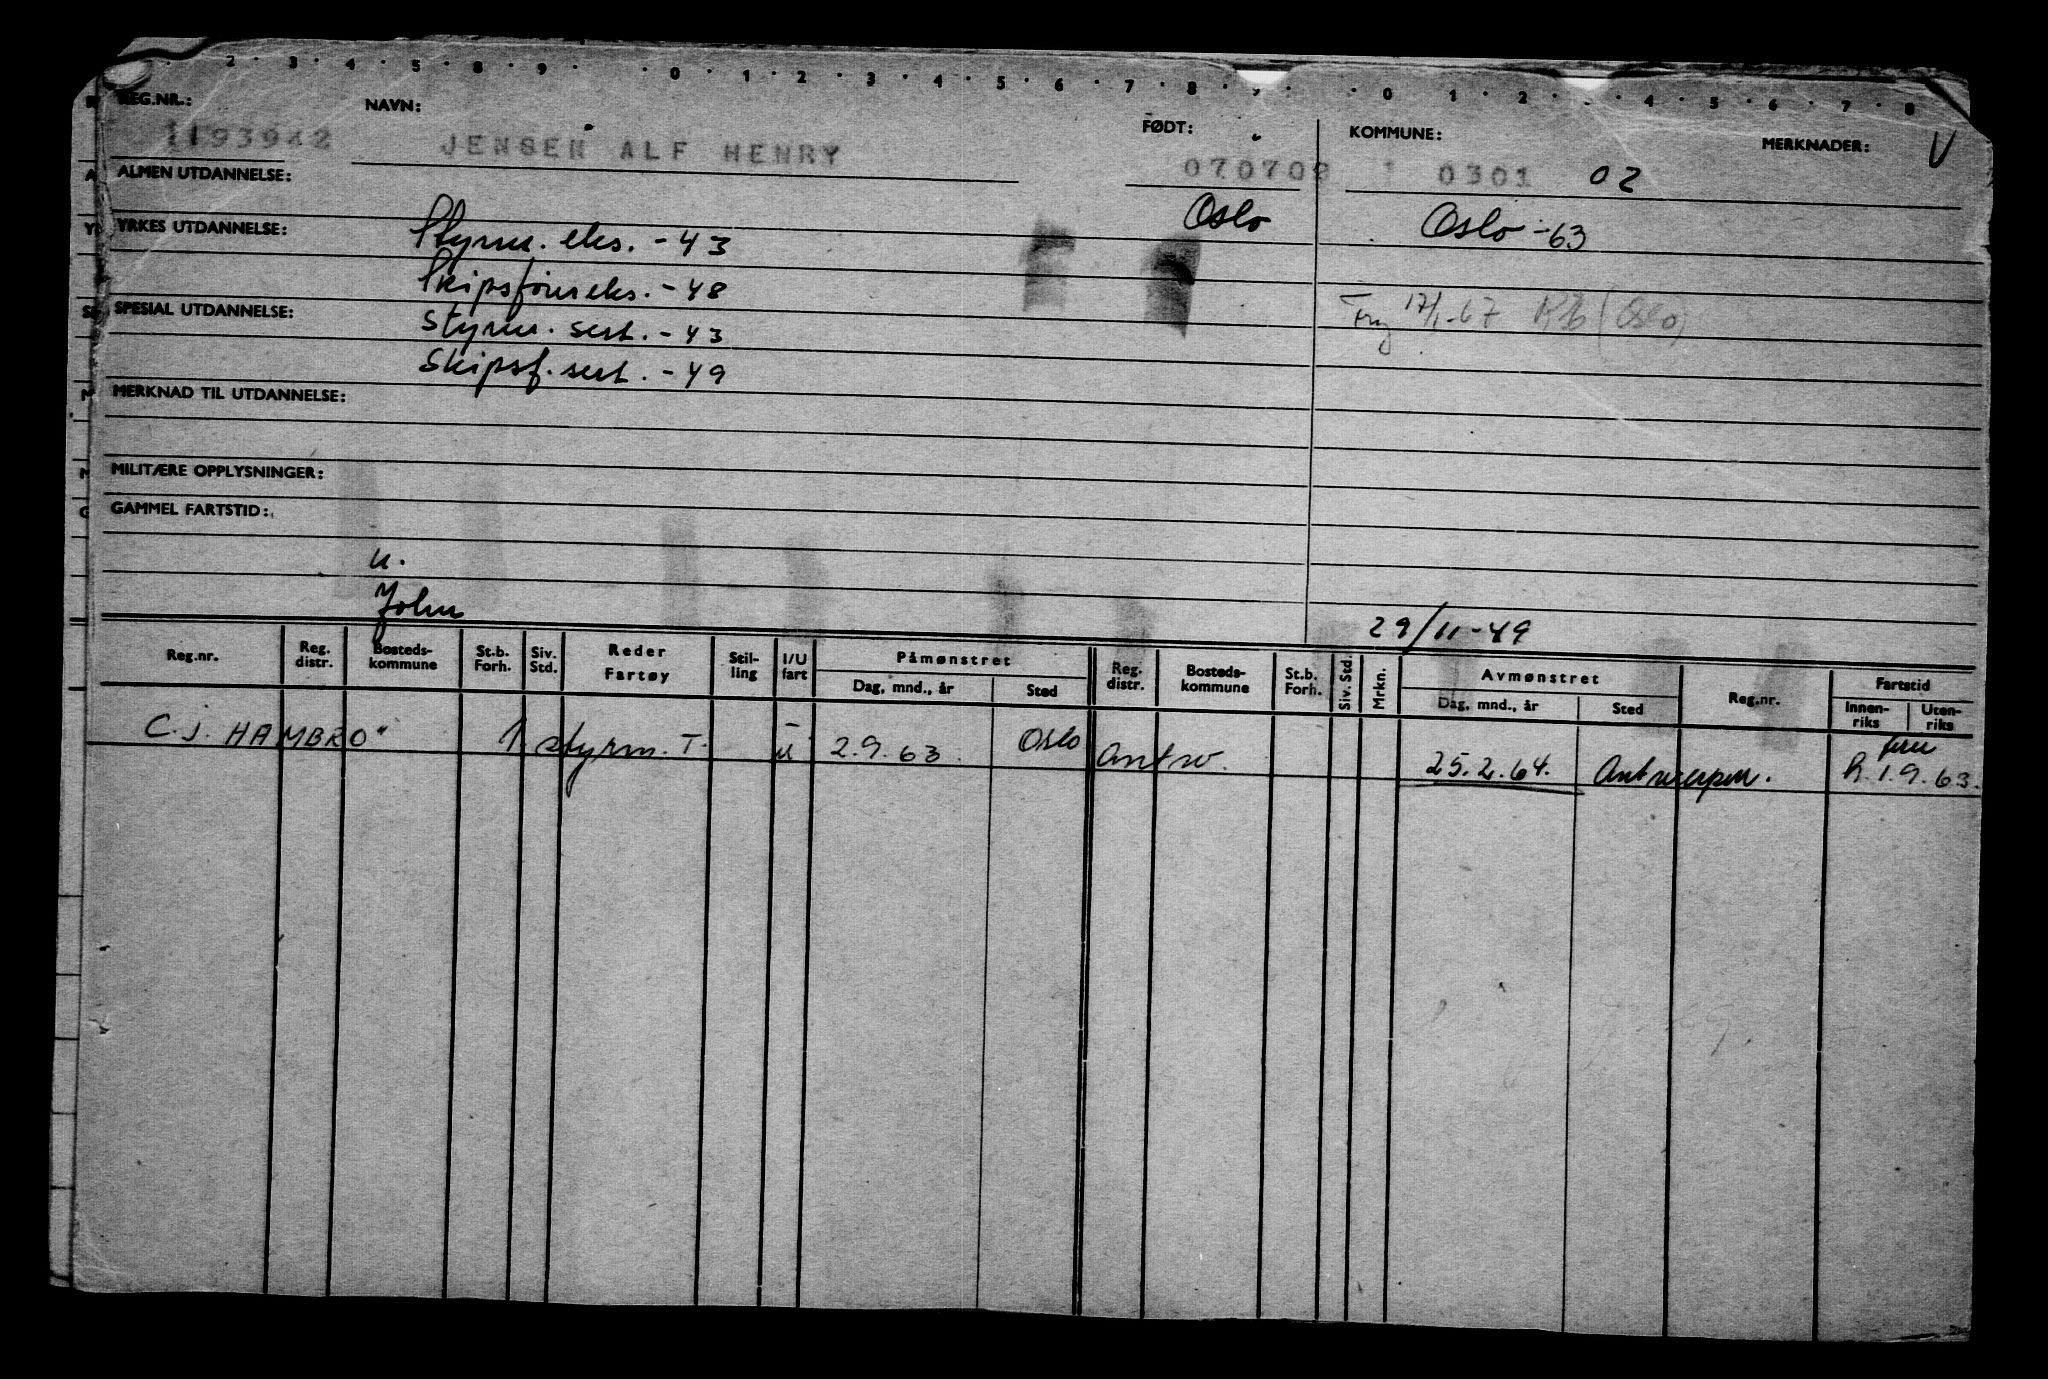 2 · 3 · 4 · 5 · 8 · 9 · · 0 · 1 · 2 · 3 · 4 · 5 · 6 · 7 · 8 · · 0 · 1 · 2 · 4 · 5 · 6 · 7 · 8
REG.NR.: NAVN: FØDT: KOMMUNE: MERKNADER: V
1193942 JENSEN ALF HENRY 070708 0301 02
ALMEN UTDANNELSE:
Oslo Oslo -63
YRKES UTDANNELSE: Styrm. eks. - 43
Skipsførereks. - 48
Fry 17/1-67 (Oslo)
SPESIAL UTDANNELSE: Styrm. sert. - 43
Skipsf. sert. - 49
MERKNAD TIL UTDANNELSE:
MILITÆRE OPPLYSNINGER:
GAMMEL FARTSTID:
u.
John 29/11-49
Reg.nr. Reg. distr. Bosteds-kommune St.b. Forh. Siv. Std. Reder Fartøy Stil-ling I/U fart Påmønstret Dag, mnd., år Sted Reg. distr. Bosteds-kommune St.b. Forh. Siv. Std. Mrkn. Avmønstret Dag, mnd., år Sted Reg.nr. Fartstid Innen-riks Uten-riks
C.J. HAMBRO" 1 styrm. T. u 2.9.63. Oslo Antw. 25.2.64. Antwerpen. R. 1.9.63.